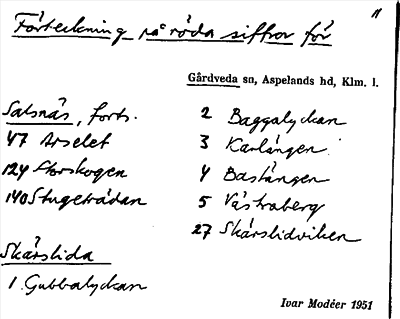 11
Förteckning på röda siffror för
Gårdveda sn, Aspelands hd, Klm. l.
Salsnäs, forts.
47 Arselet
124 Storskogen
140 Stugeträdan
Skärslida
1. Gubbalyckan
2 Baggalyckan
3 Karlängen
4 Bastängen
5 Västraberg
27 Skärslidviken
Ivar Modéer 1951